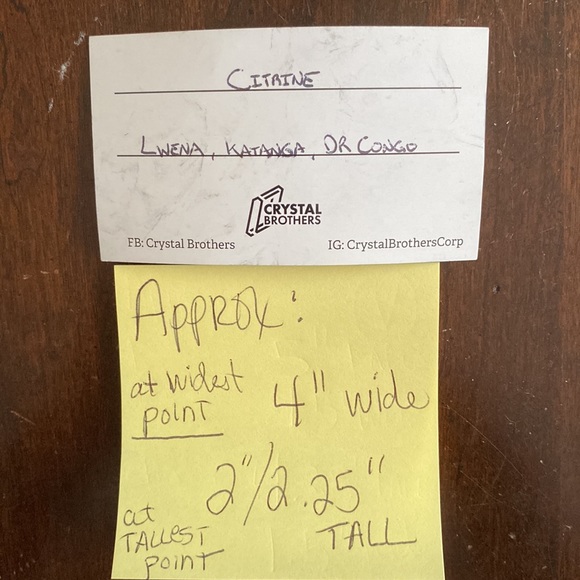 CITRINE
LWENA, KATANGA, DR CONGO
CRYSTAL
BROTHERS
FB: Crystal Brothers IG: CrystalBrothersCorp
Approx:
at widest
point 4" wide
2"/2.25"
at
TALLEST TALL
point